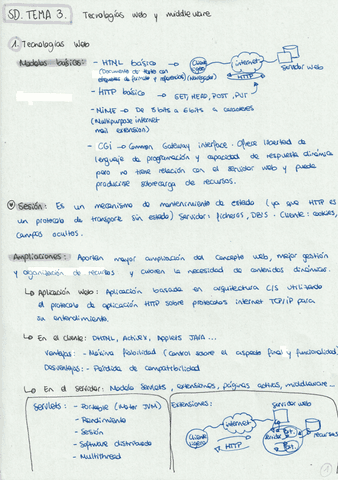 SD. TEMA 3. Tecnologías web y middleware
1. Tecnologías Web
Modelos básicos: - HTML básico
(Documento de texto con
etiquetas de formato y referencias) (Navegador)
Cliente
internet
HTTP
servidor web
- HTTP básico
↳ GET, HEAD, POST, PUT
- MIME → De 8 bits a 6 bits a caracteres
(Multipurpose internet
mail extension)
- CGI → Common Gateway interface. Ofrece libertad de
lenguaje de programación y capacidad de respuesta dinámica
pero no tiene relación con el servidor web y puede
producirse sobrecarga de recursos.
Sesión: Es un mecanismo de mantenimiento de estado (ya que HTTP es
un protocolo de transporte sin estado) Servidor: ficheros, DBs. Cliente: cookies,
campos ocultos.
Ampliaciones: Aportan mayor ampliación del concepto web, mejor gestión
y organización de recursos y cubren la necesidad de contenidos dinámicos.
↳ Aplicación Web: Aplicación basada en arquitectura C/S utilizando
el protocolo de aplicación HTTP sobre protocolos internet TCP/IP para
su entendimiento.
↳ En el cliente: DHTML, ActiveX, Applets JAVA ...
Ventajas: - Máxima flexibilidad (control sobre el aspecto final y funcionalidad)
Desventajas: - Pérdida de compatibilidad
↳ En el servidor: Modelo Servlets, extensiones, páginas activas, middleware...
Servlets: - Portable (Motor JVM)
- Rendimiento
- Sesión
- Software distribuido
- Multithread
Extensiones:
Cliente
internet
HTTP
servidor web
servidor
Ext.
Ext.
recursos
1